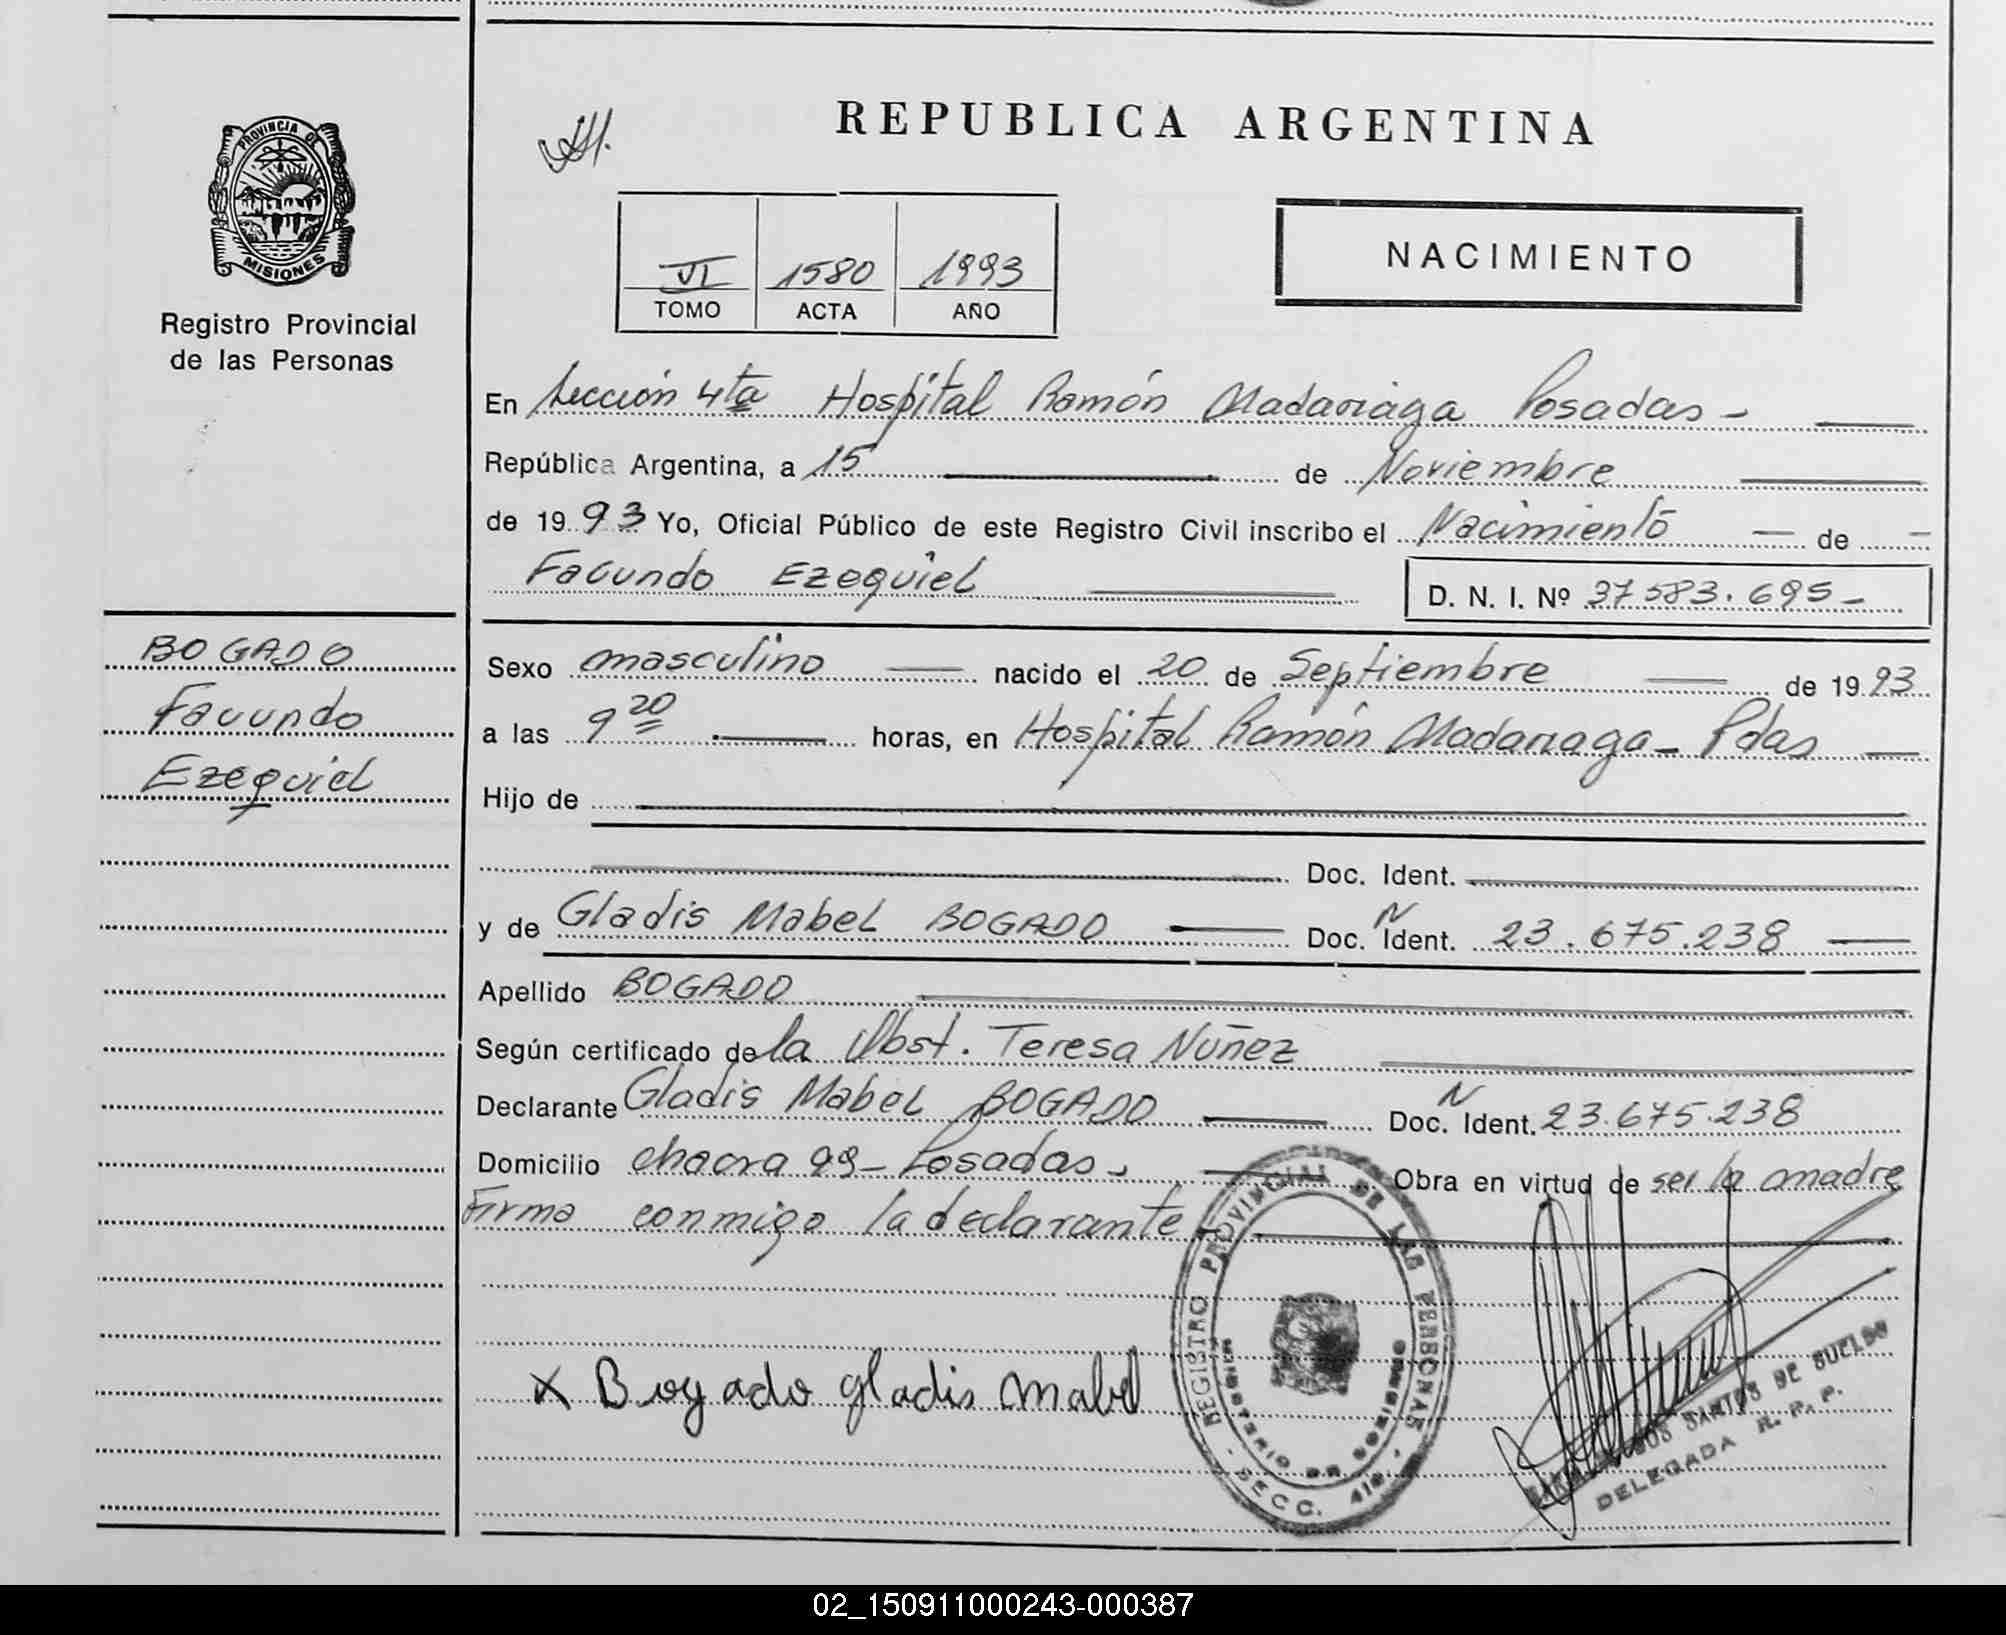 PROVINCIA DE
MISIONES
Registro Provincial
de las Personas
BOGADO
Facundo
Ezequiel
REPUBLICA ARGENTINA
VI 1580 1993
TOMO ACTA AÑO
NACIMIENTO
En Sección 4ta Hospital Ramón Madariaga Posadas -
República Argentina, a 15 de Noviembre
de 1993 Yo, Oficial Público de este Registro Civil inscribo el Nacimiento de
Facundo Ezequiel D. N. I. Nº 37583.695-
Sexo masculino nacido el 20 de Septiembre de 1993
a las 9 20 horas, en Hospital Ramón Madariaga - Pdas
Hijo de
Doc. Ident.
y de Gladis Mabel BOGADO Doc. N Ident. 23.675.238
Apellido BOGADO
Según certificado de la Obst. Teresa Nuñez
Declarante Gladis Mabel BOGADO Doc. N Ident. 23.675.238
Domicilio chacra 99 - Posadas - Obra en virtud de ser la madre
Firma conmigo la declarante
x Bogado gladis mabel
REGISTRO PROVINCIAL DE LAS PERSONAS
MINISTERIO DE GOBIERNO
SECC. 4ta.
SANTOS DE SUELDO
DELEGADA R. P. P.
02_150911000243-000387